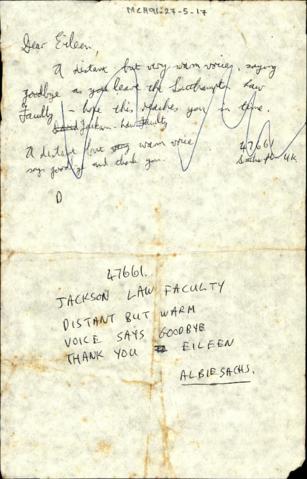 MCH91-27-5-17
Dear Eileen,
A distant but very warm voice, saying
goodbye as you leave the Southampton Law
Faculty - hope this reaches you in time.
Jackson Law Faculty
A distant but very warm voice
says goodbye and thank you.
47661
UK
D
47661.
JACKSON LAW FACULTY
DISTANT BUT WARM
VOICE SAYS GOODBYE
THANK YOU EILEEN
ALBIE SACHS.